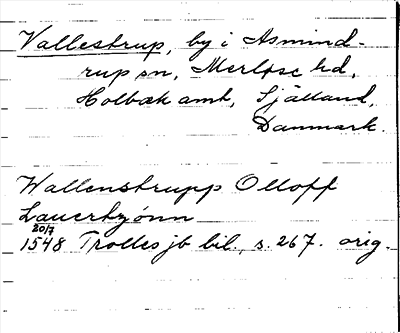 Vallestrup, by i Asmind-
rup sn, Merløse hd,
Holbæk amt, Själland,
Danmark.
Wallenstrupp Olloff
Lauerhzönn
20/7
1548 Trolles jb bil., s. 267. orig.